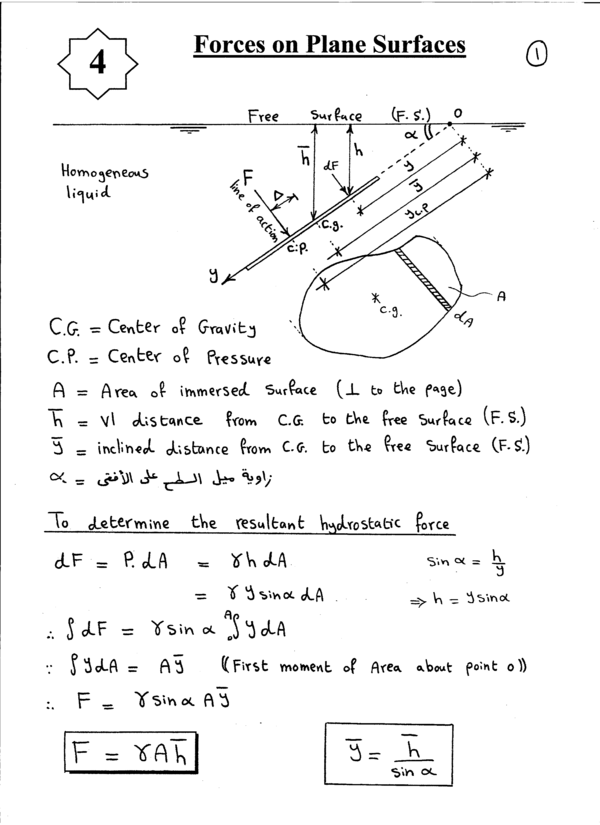 4
Forces on Plane Surfaces
1
Free Surface (F.S.) O
α
h̄
h
Homogeneous
liquid
F
dF
Δ
line of action
y
ȳ
y c.p
c.g.
c.p.
y
A
c.g.
dA
C.G. = Center of Gravity
C.P. = Center of Pressure
A = Area of immersed surface (⊥ to the page)
h̄ = vl distance from C.G. to the free surface (F.S.)
ȳ = inclined distance from C.G. to the free surface (F.S.)
α = زاوية ميل السطح على الأفقى
To determine the resultant hydrostatic force
dF = P.dA = γhdA sin α = h/y
= γ y sinα dA ⇒ h = y sinα
∴ ∫dF = γ sin α ₀∫ᴬ y dA
∵ ∫ydA = Aȳ ((First moment of Area about point o))
∴ F = γ sin α Aȳ
F = γAh̄
ȳ = h̄ / sin α